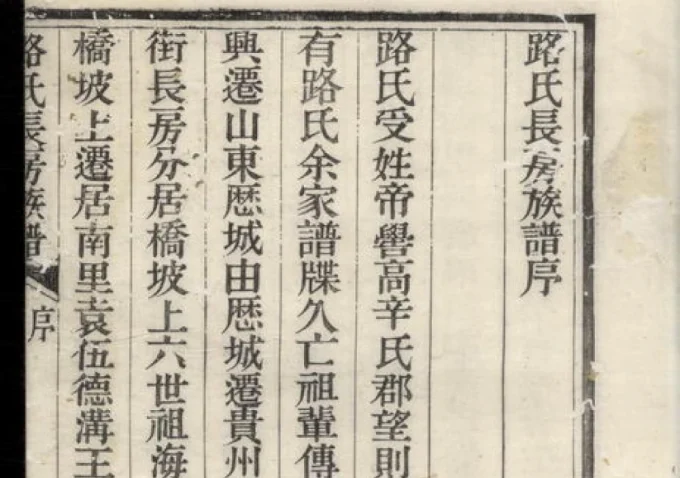 路氏長房族譜序
路氏受姓帝嚳高辛氏郡望則
有路氏余家譜牒久亡祖輩傳
興遷山東歷城由歷城遷貴州
街長房分居橋坡上六世祖海
橋坡上遷居南里袁伍德溝王
路氏長房族譜 序